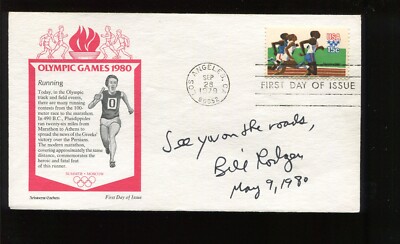 OLYMPIC GAMES 1980
Running
Today, in the Olympic
track and field events,
there are many running
contests from the 100-
meter race to the marathon.
In 490 B.C., Pheidippides
ran twenty-six miles from
Marathon to Athens to
spread the news of the Greeks'
victory over the Persians.
The modern marathon,
covering approximately the same
distance, commemorates the
heroic and fatal feat
of this runner.
SUMMER • MOSCOW
First Day of Issue
0
LOS ANGELES, CA
SEP
28
1979
90052
USA
15c
FIRST DAY OF ISSUE
See you on the roads,
Bill Rodgers
May 9, 1980